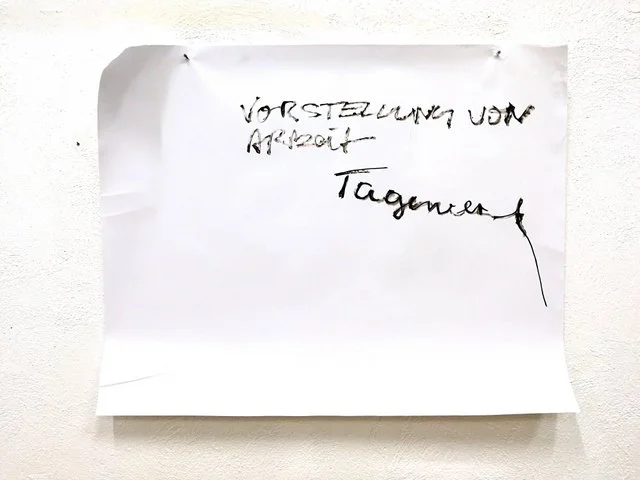 VORSTELLUNG VON
ARBEIT
Tagewerk